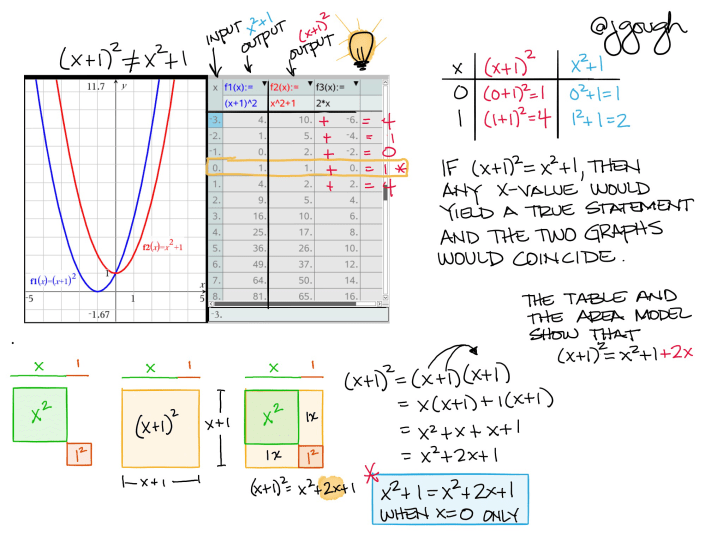 @jgough
(x+1)² ≠ x²+1
INPUT
x²+1
OUTPUT
(x+1)²
OUTPUT
11.7 y
f2(x)=x²+1
f1(x)=(x+1)²
1
x
-5 1 5
-1.67
x f1(x):= ▼ f2(x):= ▼ f3(x):= ▼
(x+1)^2 x^2+1 2*x
-3. 4. 10. + -6. = 4
-2. 1. 5. + -4. = 1
-1. 0. 2. + -2. = 0
0. 1. 1. + 0. = 1 *
1. 4. 2. + 2. = 4
2. 9. 5. 4.
3. 16. 10. 6.
4. 25. 17. 8.
5. 36. 26. 10.
6. 49. 37. 12.
7. 64. 50. 14.
8. 81. 65. 16.
-3.
x (x+1)² x²+1
0 (0+1)²=1 0²+1=1
1 (1+1)²=4 1²+1=2
IF (x+1)²=x²+1, THEN
ANY X-VALUE WOULD
YIELD A TRUE STATEMENT
AND THE TWO GRAPHS
WOULD COINCIDE.
THE TABLE AND
THE AREA MODEL
SHOW THAT
(x+1)²=x²+1+2x
x 1
x²
1²
x 1
(x+1)²
x+1
x+1
x 1
x² 1x
1x 1²
(x+1)²=x²+2x+1
(x+1)²=(x+1)(x+1)
=x(x+1)+1(x+1)
=x²+x+x+1
=x²+2x+1
* x²+1=x²+2x+1
WHEN X=0 ONLY